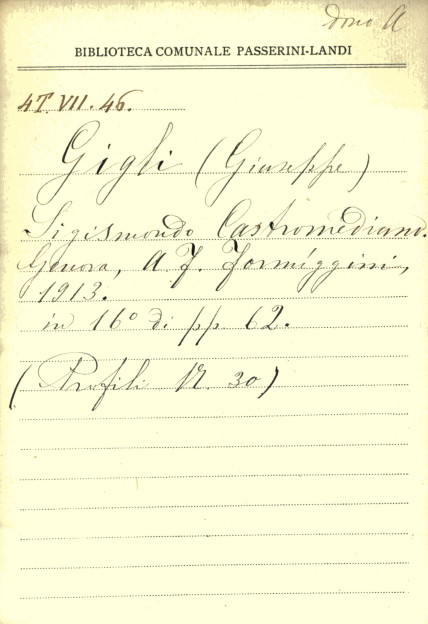 dono A
BIBLIOTECA COMUNALE PASSERINI-LANDI
4T. VII. 46.
Gigli (Giuseppe)
Sigismondo Castromediano.
Genova, A. F. Formíggini,
1913.
in 16° di pp 62.
(Profili N. 30)